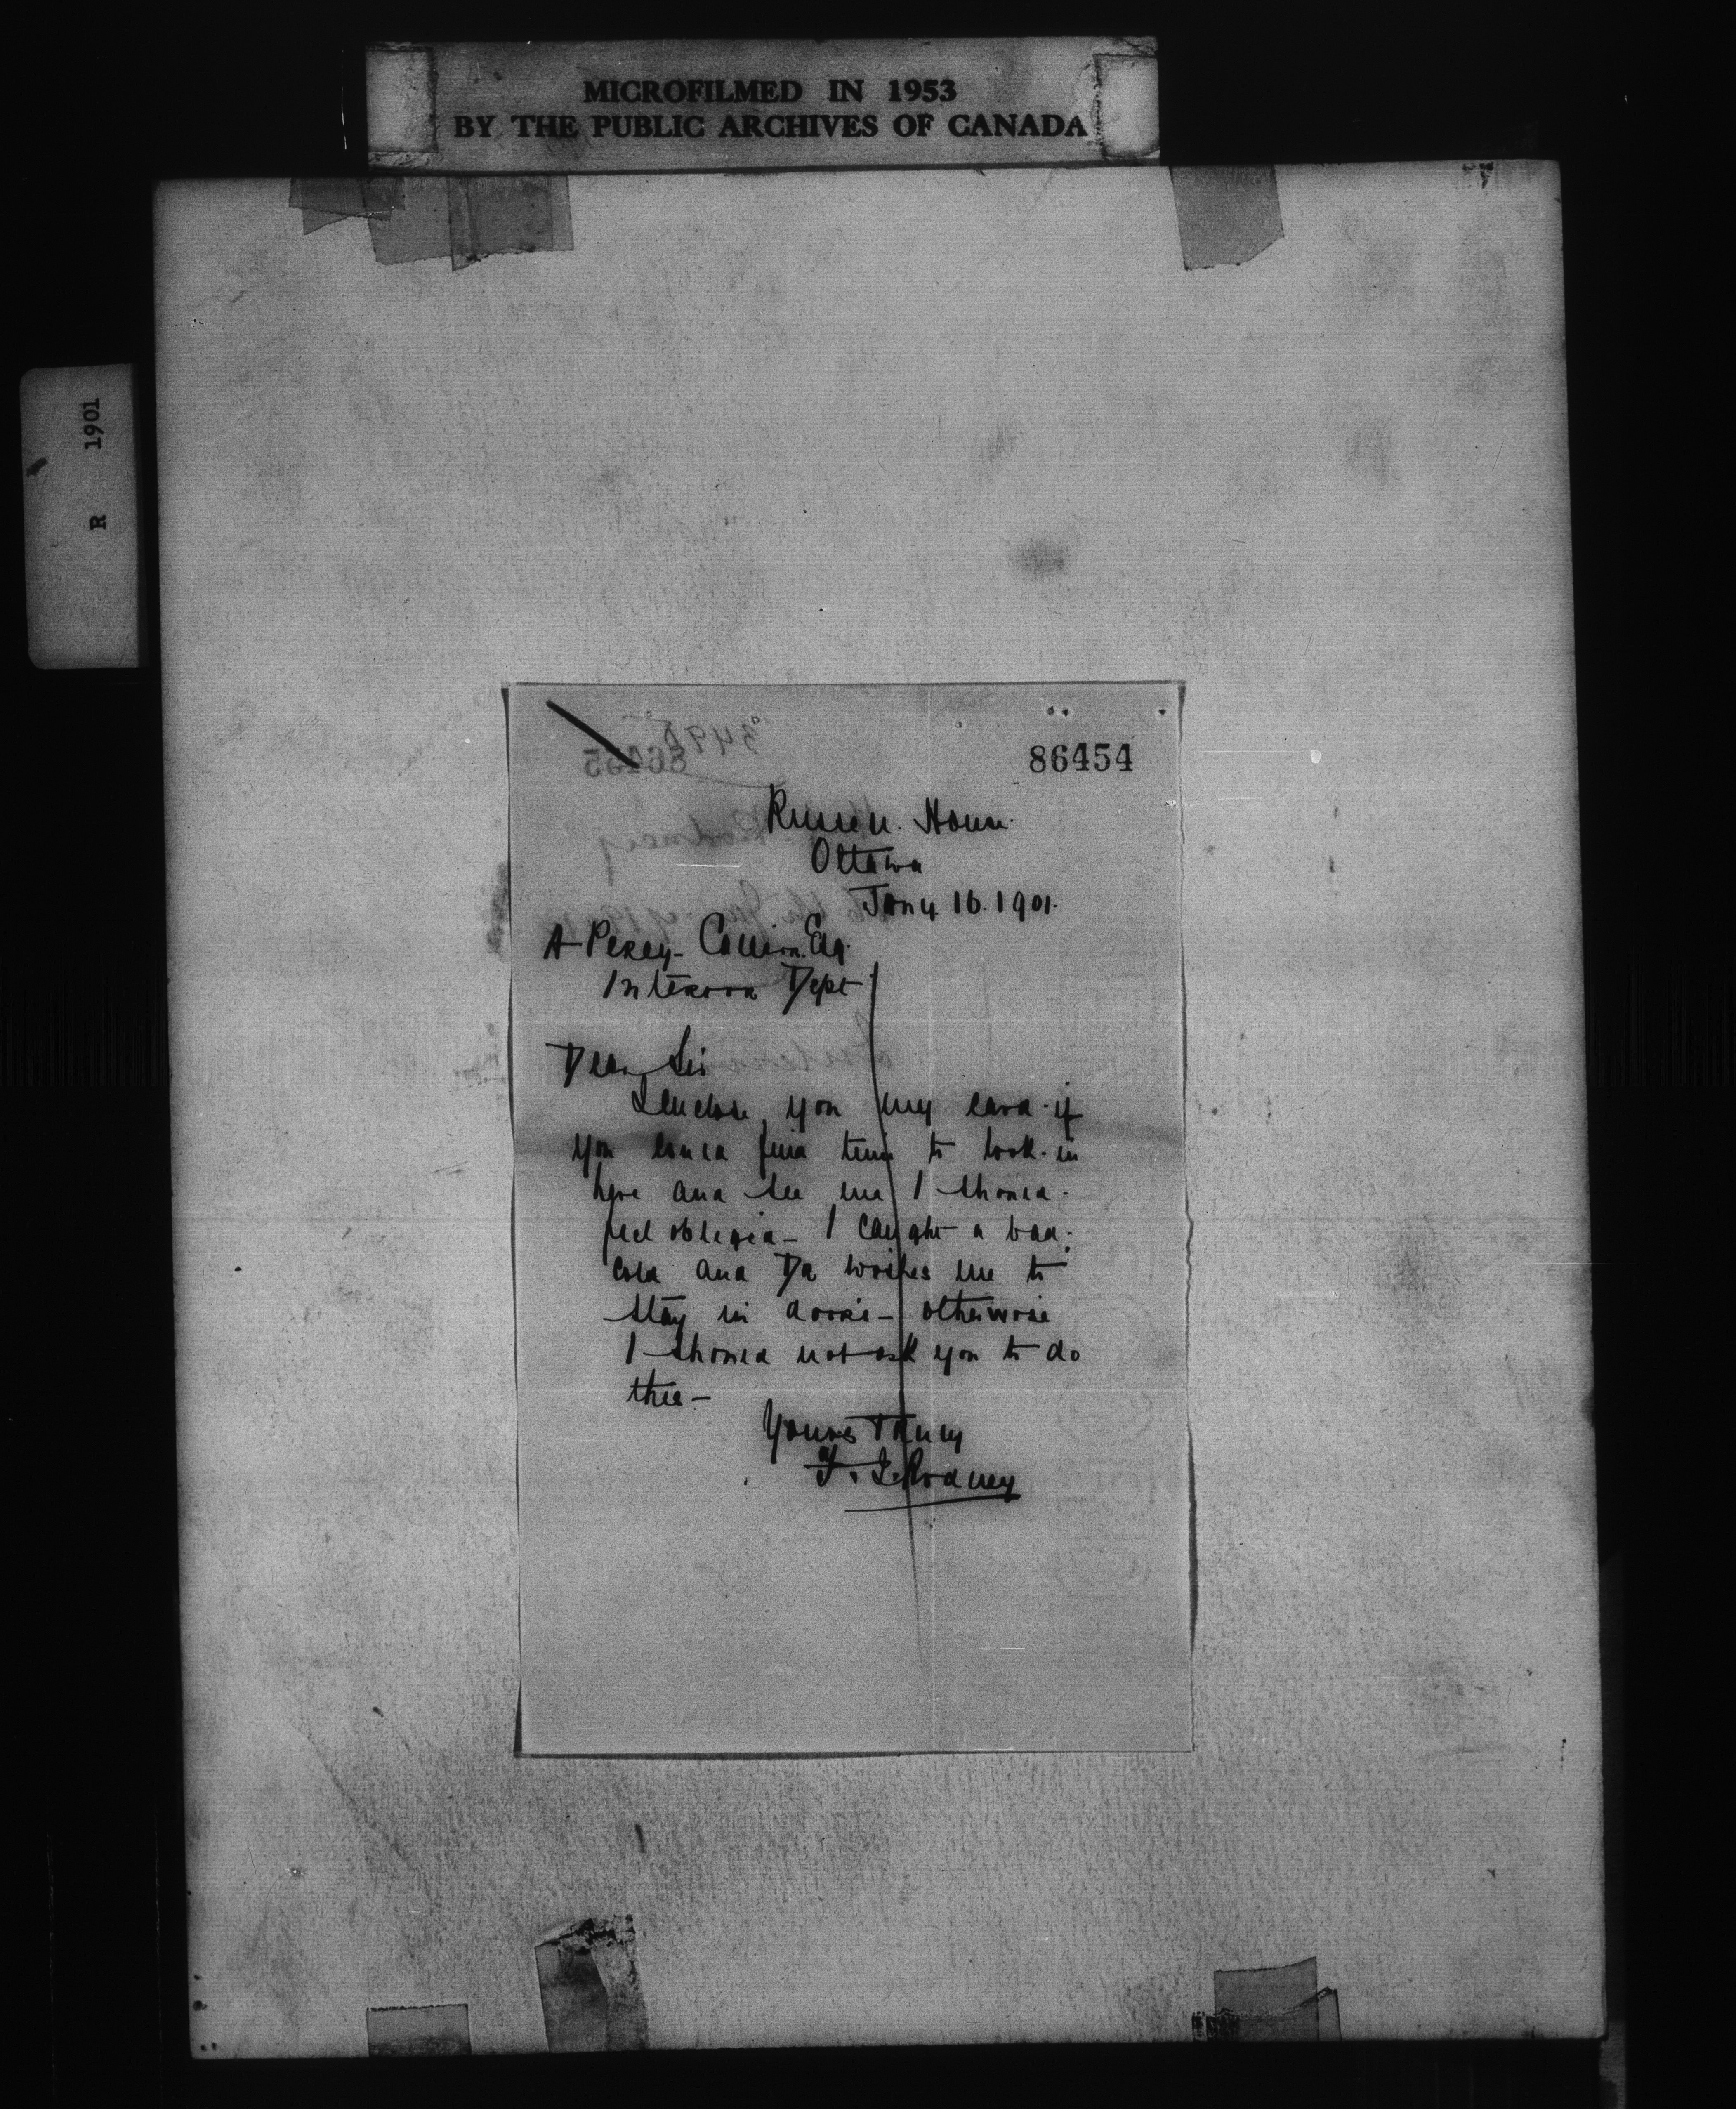 MICROFILMED IN 1953
BY THE PUBLIC ARCHIVES OF CANADA
R 1901
86454
Russell House
Ottawa
Jany 16. 1901.
A Percy - Collier Esq.
Interior Dept
Dear Sir
I enclose you my card - if
you could find time to look - in
here and see me I should -
feel obliged - I caught a bad -
cold and Dr wishes me to
stay in doors - otherwise
I should not ask you to do
this -
Yours Truly
F. Rodney